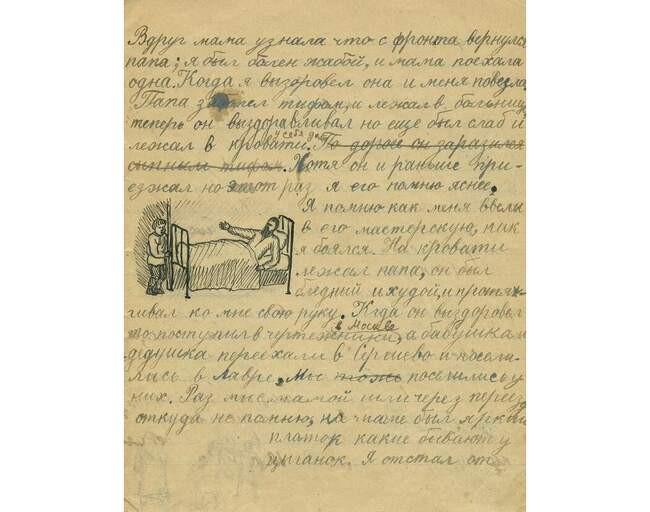 Вдруг мама узнала что с фронта вернулся
папа; я был болен жабой, и мама поехала
одна. Когда я выздоровел она и меня повезла.
Папа заболел тифом, и лежал в больнице
теперь он выздоравливал но еще был слаб и
у себя до
лежал в кровати. По дороге он заразился
сыпным тифом. Хотя он и раньше при-
езжал но этот раз я его помню яснее.
Я помню как меня ввели
в его мастерскую, и как
я боялся. На кровати
лежал папа, он был
бледный и худой, и протя-
гивал ко мне свою руку. Когда он выздоровел
в Москве
то поступил в чертежники, а бабушка и
дедушка переехали в Сергиево и посели-
лись в Лавре. Мы тоже поселились у
них. Раз мы с мамой шли через переезд
откуда не помню, на маме был яркий
платок какие бывают у
цыганок. Я отстал от